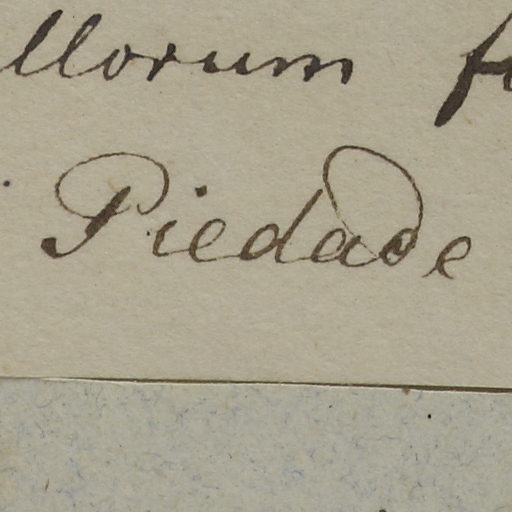 llorum
Piedade